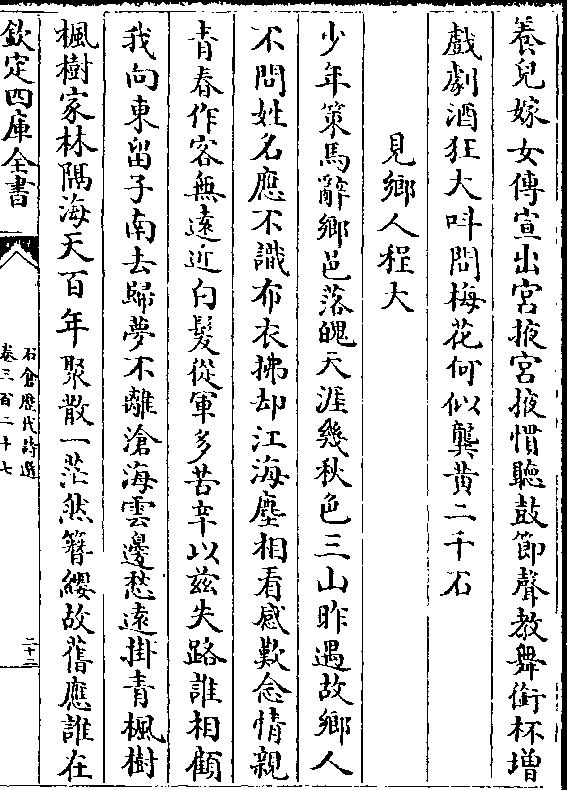 養兒嫁女傳宣出宮掖宮掖慣聽鼓節聲教舞銜杯增
戲劇酒狂大呌問梅花何似龔黄二千石
見鄉人程大
少年策馬辭鄉邑落魄天涯幾秋色三山昨遇故鄉人
不問姓名應不識布衣拂却江海塵相看感歎念情親
青春作客無遠近白髮從軍多苦辛以兹失路誰相顧
我向東留子南去歸夢不離滄海雲邊愁遠掛青楓樹
楓樹家林隅海天百年聚散一茫然簪纓故舊應誰在
欽定四庫全書
石倉歴代詩選
卷三百二十七
二十二